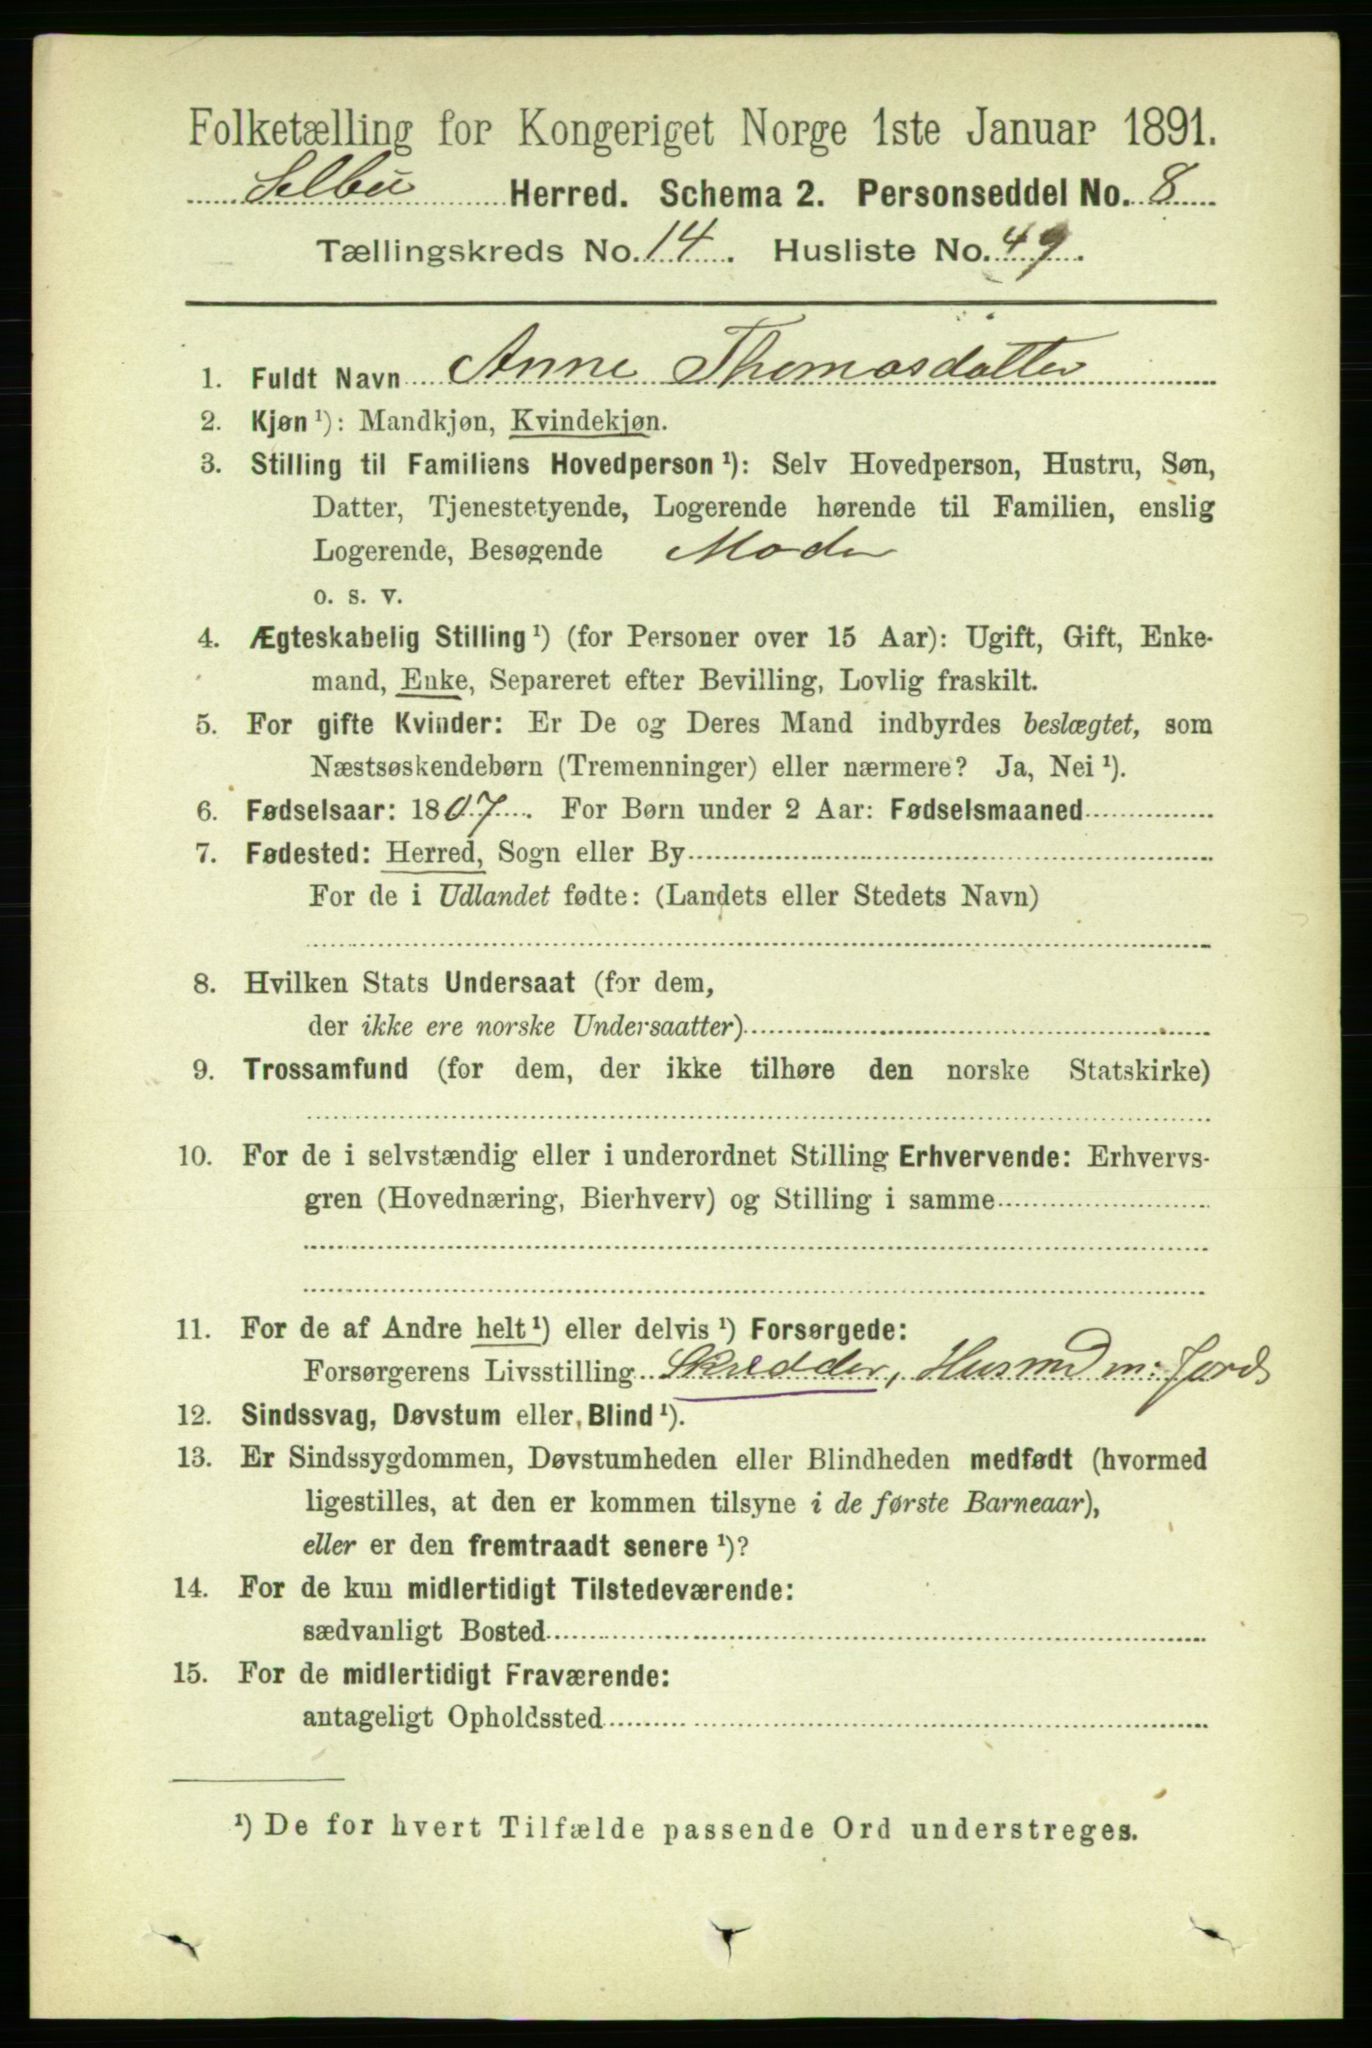 Folketælling for Kongeriget Norge 1ste Januar 1891.
Selbu Herred. Schema 2. Personseddel No. 8
Tællingskreds No. 14. Husliste No. 49.
1. Fuldt Navn Anne Thomasdatter
2. Kjøn ¹): Mandkjøn, Kvindekjøn.
3. Stilling til Familiens Hovedperson ¹): Selv Hovedperson, Hustru, Søn,
Datter, Tjenestetyende, Logerende hørende til Familien, enslig
Logerende, Besøgende Moder
o. s. v.
4. Ægteskabelig Stilling ¹) (for Personer over 15 Aar): Ugift, Gift, Enke-
mand, Enke, Separeret efter Bevilling, Lovlig fraskilt.
5. For gifte Kvinder: Er De og Deres Mand indbyrdes beslægtet, som
Næstsøskendebørn (Tremenninger) eller nærmere? Ja, Nei ¹).
6. Fødselsaar: 1807. For Børn under 2 Aar: Fødselsmaaned
7. Fødested: Herred, Sogn eller By
For de i Udlandet fødte: (Landets eller Stedets Navn)
8. Hvilken Stats Undersaat (for dem,
der ikke ere norske Undersaatter)
9. Trossamfund (for dem, der ikke tilhøre den norske Statskirke)
10. For de i selvstændig eller i underordnet Stilling Erhvervende: Erhvervs-
gren (Hovednæring, Bierhverv) og Stilling i samme
11. For de af Andre helt ¹) eller delvis ¹) Forsørgede:
Forsørgerens Livsstilling Skredder, Husmd m: Jord
12. Sindssvag, Døvstum eller Blind ¹).
13. Er Sindssygdommen, Døvstumheden eller Blindheden medfødt (hvormed
ligestilles, at den er kommen tilsyne i de første Barneaar),
eller er den fremtraadt senere ¹)?
14. For de kun midlertidigt Tilstedeværende:
sædvanligt Bosted
15. For de midlertidigt Fraværende:
antageligt Opholdssted
¹) De for hvert Tilfælde passende Ord understreges.